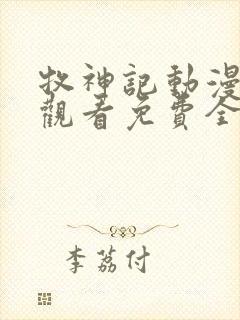 牧神記動漫
觀看免費全
李荔付